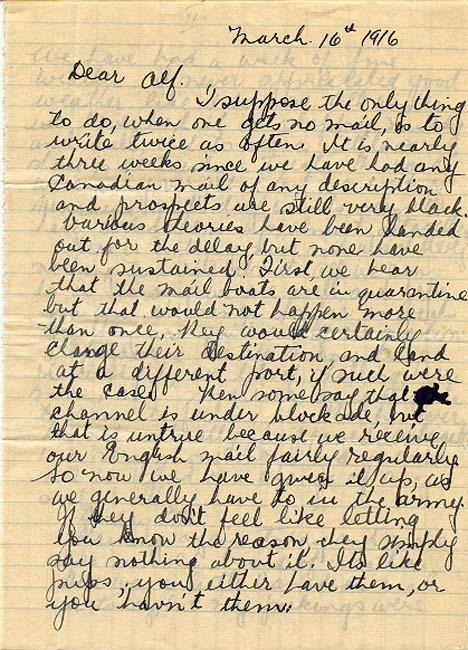 March 16th 1916
Dear Alf.
I suppose the only thing
to do, when one gets no mail, is to
write twice as often. It is nearly
three weeks since we have had any
Canadian mail of any description
and prospects are still very black.
Various theories have been handed
out for the delay but none have
been sustained. First we hear
that the mail boats are in quarantine
but that would not happen more
than once, they would certainly
change their destination and land
at a different port, if such were
the case. Then some say that the
channel is under blockade, but
that is untrue because we receive
our English mail fairly regularly
So now we have given it up, as
we generally have to in the army.
If they don't feel like letting
you know the reason they simply
say nothing about it. Its like
, you either have them, or
you havn't them.